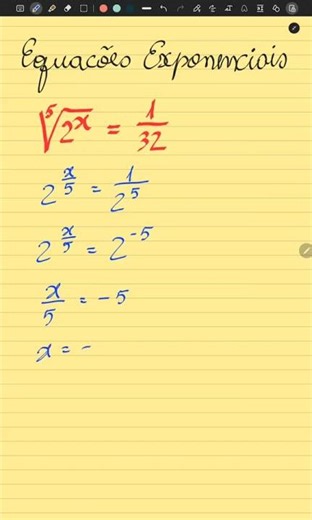 Equacões Exponenciais
⁵√2ˣ = 1/32
2^(x/5) = 1/2⁵
2^(x/5) = 2⁻⁵
x/5 = -5
x = -